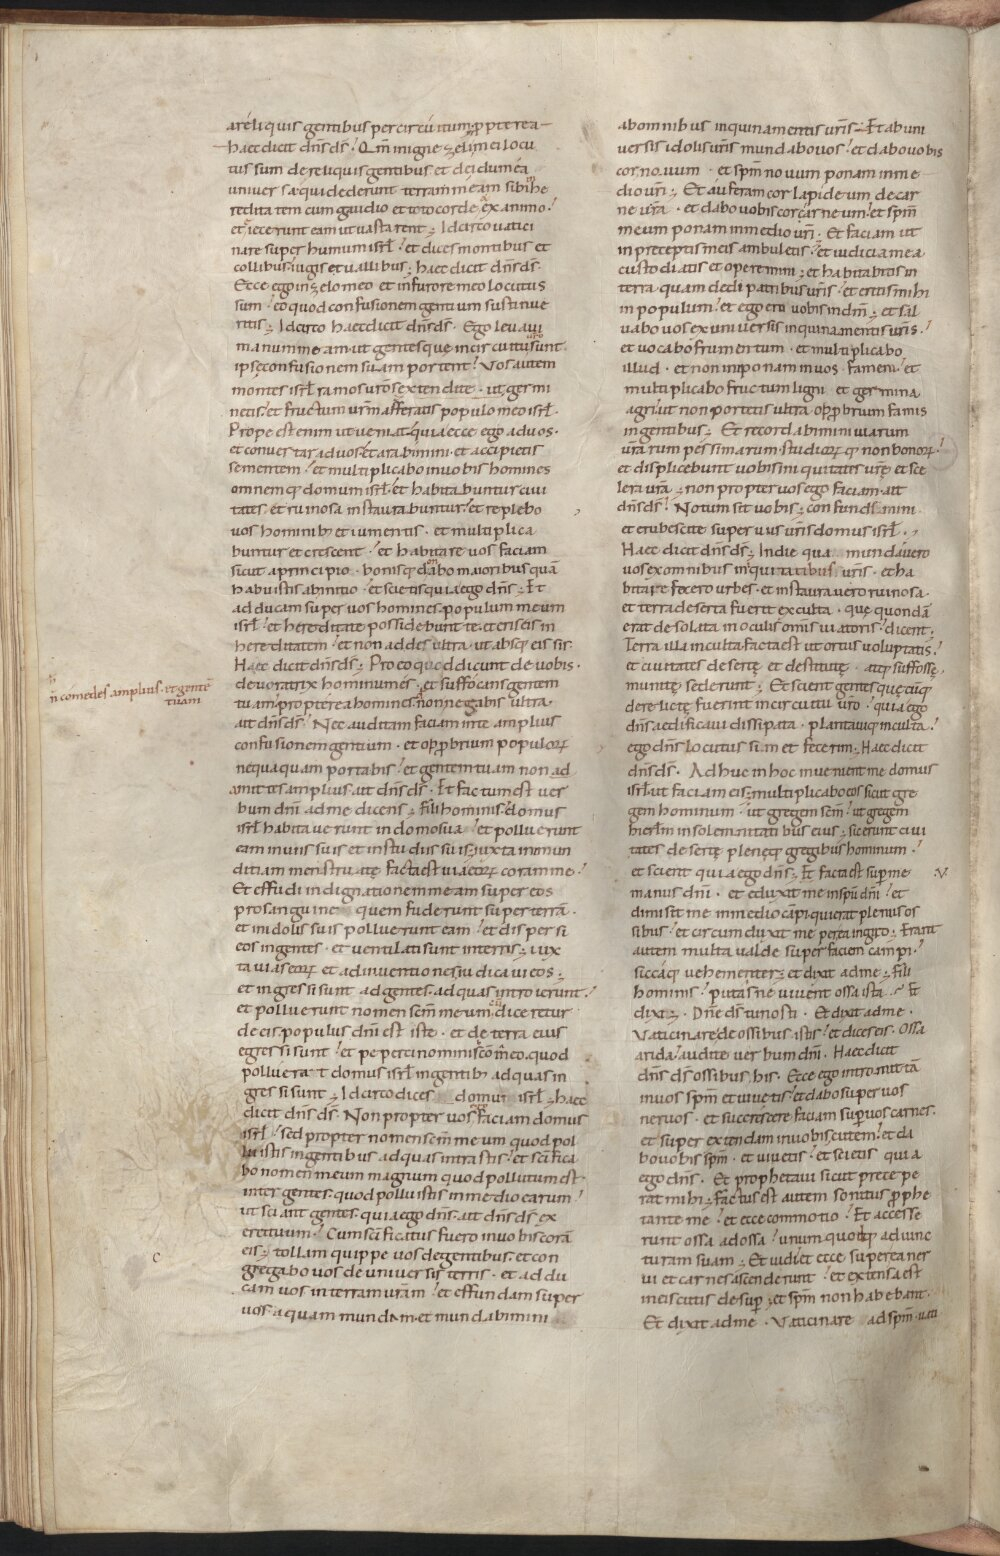 a reliquis gentibus per circuitum; propterea
haec dicit dn̄s ds̄. Qm̄ in igne zeli mei locu
tus sum de reliquis gentibus et de idumea
universa qui dederunt terram meam sibi in he
reditatem cum gaudio et toto corde et ex animo.
et eiecerunt eam ut vastarent; Idcirco vatici
nare super humum isrl̄. et dices montibus et
collibus. iugis et vallibus; haec dicit dn̄s ds̄.
Ecce ego in zelo meo et in furore meo locutus
sum. eo quod confusionem gentium sustinue
ritis; Idcirco haec dicit dn̄s ds̄. Ego levavi
manum meam. ut gentes que in circuitu vr̄o sunt
ipse confusionem suam portent. Vos autem
montes isrl̄ ramos vr̄os extendite. ut germi
netis. et fructum vr̄m afferatis populo meo isrl̄.
Prope est enim ut veniat. quia ecce ego ad vos.
et convertar ad vos. et arabimini. et accipietis
sementem. et multiplicabo in vobis homines
omnemq; domum isrl̄. et habitabuntur civi
tates. et ruinosa instaurabuntur. et replebo
vos hominib; et iumentis. et multiplica
buntur et crescent. et habitare vos faciam
sicut a principio. bonisq; donabo maioribus quā
habuistis ab initio. et scietis quia ego dn̄s; Et
adducam super vos homines. populum meum
isrl̄. et hereditate possidebunt te. et eris eis in
hereditatem. et non addes ultra. ut absq; eis sis.
Haec dicit dn̄s ds̄; Pro eo quod dicunt de vobis.
devoratrix hominum es. et suffocans gentem
tuam. propterea homines non negabis ultra.
ait dn̄s ds̄; Nec auditam faciam in te amplius
confusionem gentium. et obprobrium populorꝝ
nequaquam portabis. et gentem tuam non ad
mittes amplius. ait dn̄s ds̄. Et factum est ver
bum dn̄i ad me dicens; Fili hominis. domus
isrl̄ habitaverunt in domo sua. et polluerunt
eam in viis suis et in studiis suis; iuxta inmun
ditiam menstruatę facta est via eorꝝ coram me.
Et effudi indignationem meam super eos
pro sanguine quem fuderunt super terrā.
et in idolis suis polluerunt eam. et dispersi
eos in gentes. et ventilati sunt in terris; iux
ta vias eorꝝ et adinventiones iudicavi eos;
et ingressi sunt ad gentes. ad quas introierunt.
et polluerunt nomen sc̄m meum. cū diceretur
de eis. populus dn̄i est iste. et de terra eius
egressi sunt. et peperci nomini sc̄o meo. quod
polluerat domus isrl̄ in gentib; ad quas in
gressi sunt; Idcirco dices domui isrl̄; haec
dicit dn̄s ds̄. Non propter vos ego faciam domus
isrl̄. sed propter nomen sc̄m meum quod pol
luistis in gentibus ad quas intrastis. et sc̄ifica
bo nomen meum magnum quod pollutum est
inter gentes. quod polluistis in medio earum.
ut sciant gentes. quia ego dn̄s. ait dn̄s ds̄ ex
ercituum. Cum sc̄ificatus fuero in vobis corā
eis; tollam quippe vos de gentibus. et con
gregabo vos de universis terris. et addu
cam vos in terram vr̄am. et effundam super
vos aquam mundam. et mundabimini
n̄ comedes amplius. et gentē
tuam
c
ab omnibus inquinamentis vr̄is. Et ab uni
versis idolis vr̄is mundabo vos. et dabo vobis
cor novum. et spm̄ novum ponam in me
dio vr̄i; Et auferam cor lapideum de car
ne vr̄a. et dabo vobis cor carneum. et spm̄
meum ponam in medio vr̄i. Et faciam ut
in preceptis meis ambuletis. et iudicia mea
custodiatis et operemini; et habitabitis in
terra quam dedi patribus vr̄is. et eritis mihi
in populum. et ego ero vobis in dm̄; et sal
vabo vos ex universis inquinamentis vr̄is.
et vocabo frumentum. et multiplicabo
illud. et non inponam in vos famem. et
multiplicabo fructum ligni et germina
agri. ut non portetis ultra obprobrium famis
in gentibus; Et recordabimini viarum
vr̄arum pessimarum. studiorꝝ q; non bonorꝝ.
et displicebunt vobis iniquitates vr̄ę et sce
lera vr̄a; non propter vos ego faciam. ait
dn̄s ds̄. Notum sit vobis; confundimini
et erubescite super vias vr̄as domus isrl̄.
Haec dicit dn̄s ds̄; In die qua mundavero
vos ex omnibus iniquitatibus vr̄is. et ha
bitare fecero urbes. et instauravero ruinosa.
et terra deserta fuerit exculta. quę quondā
erat desolata in oculis omnis viatoris. dicent.
Terra illa inculta facta est ut ortus voluptatis.
et civitates desertę et destitutę. atq; suffossę,
munitę sederunt; Et scient gentes quęcūq;
derelictę fuerint in circuitu vr̄o. quia ego
dn̄s aedificavi dissipata. plantaviq; inculta.
ego dn̄s locutus sum et fecerim; Haec dicit
dn̄s ds̄. Adhuc in hoc invenient me domus
isrl̄. ut faciam eis; multiplicabo eos sicut gre
gem hominum. ut gregem sc̄m. ut gregem
hierlm̄ in solemnitatibus eius; sic erunt civi
tates desertę plenęq; gregibus hominum.
et scient quia ego dn̄s; Et facta est super me
manus dn̄i. et eduxit me in spū dn̄i. et
dimisit me in medio cāpi. qui erat plenus os
sibus. et circumduxit me per ea in gyro; Erant
autem multa valde super faciem campi.
siccaq; vehementer; et dixit ad me; Fili
hominis. putasne vivent ossa ista. Et
dixi; Dn̄e ds̄ tu nosti. Et dixit ad me.
Vaticinare de ossibus istis. et dices eis. Ossa
arida. audite verbum dn̄i. Haec dicit
dn̄s ds̄ ossibus his. Ecce ego intromittā
in vos spm̄ et vivetis. et dabo super vos
nervos. et succrescere faciam super vos carnes.
et super extendam in vobis cutem. et da
bo vobis spm̄. et vivetis. et scietis quia
ego dn̄s. Et prophetavi sicut precepe
rat mihi; Factus est autem sonitus prophe
tante me. et ecce commotio. Et accesse
runt ossa ad ossa. unumquodq; ad iunc
turam suam; Et vidi et ecce super ea ner
vi et carnes ascenderunt. et extensa est
in eis cutis desuper; et spm̄ non habebant.
Et dixit ad me. Vaticinare ad spm̄. vati